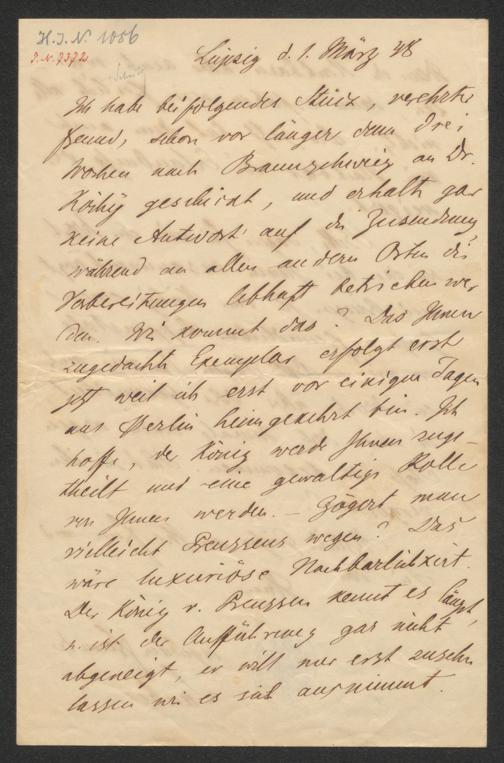 H. I. N. 1086
J. N. 7372
Leipzig d. 1. März 48
Ich habe beifolgendes Stück, verehrter
Freund, schon vor länger denn drei
Wochen nach Braunschweig an Dr.
Köchy geschickt, und erhalte gar
keine Antwort auf die Zusendung,
während an allen andern Orten die
Vorbereitungen lebhaft betrieben wer
den. Wie kommt das? Das Ihnen
zugedachte Exemplar erfolgt erst
jetzt weil ich erst vor einigen Tagen
aus Berlin heimgekehrt bin. Ich
hoffe, der König werde Ihnen zuge-
theilt und eine gewaltige Rolle
von Ihnen werden. – Zögert man
vielleicht Preussens wegen? Das
wäre luxuriöse Nachbarlichkeit.
Der König v. Preussen kennt es längst,
u. ist der Aufführung gar nicht
abgeneigt, er will nur erst zusehn
lassen wie es sich ausnimmt.